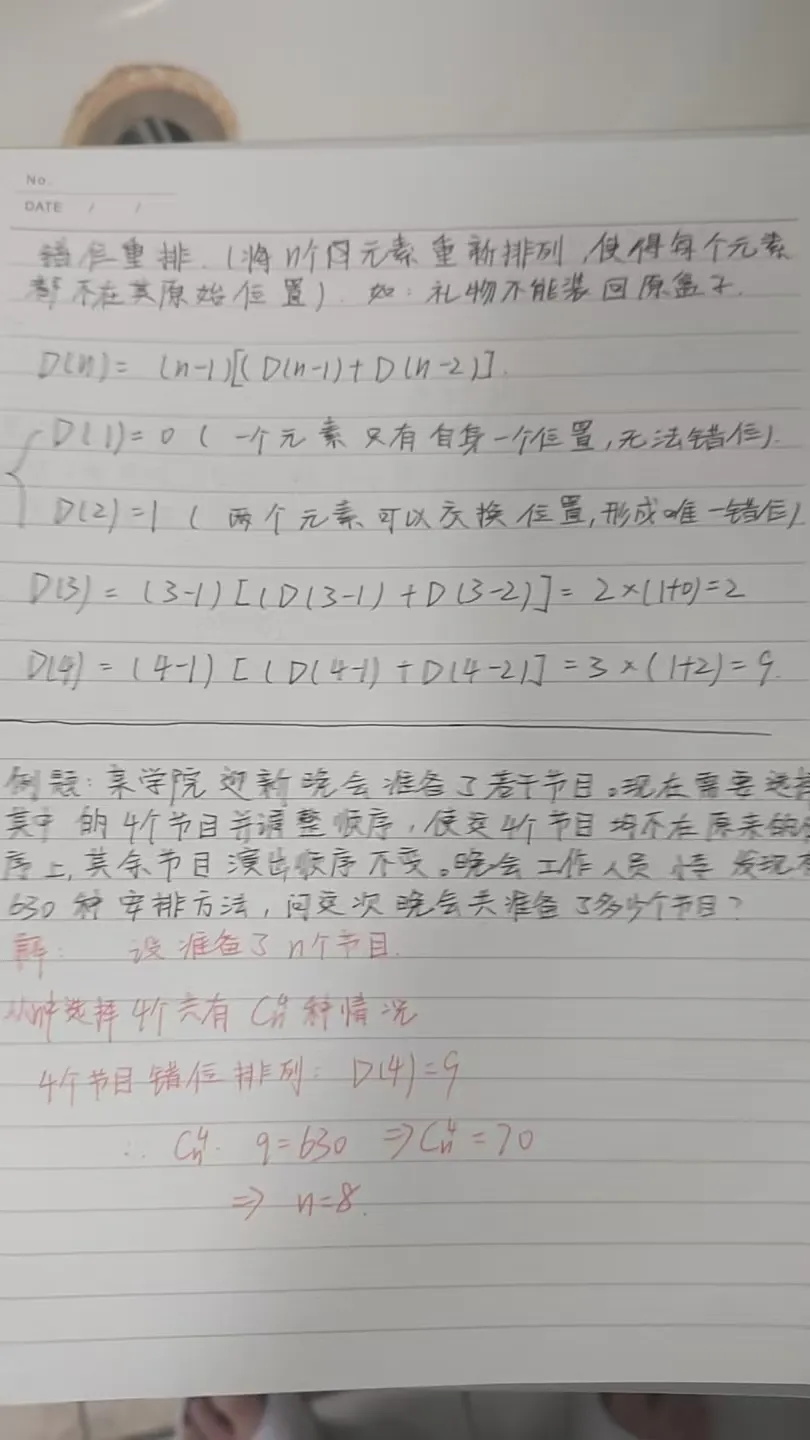 No.
DATE / /
错位重排.(将n个元素重新排列,使得每个元素
都不在其原始位置).如:礼物不能装回原盒子.
D(n)= (n-1)[(D(n-1)+D(n-2)].
D(1)=0 ( 一个元素只有自身一个位置,无法错位).
D(2)=1 ( 两个元素可以交换位置,形成唯一错位)
D(3) = (3-1)[(D(3-1)+D(3-2)]= 2×(1+0)=2
D(4) = (4-1)[(D(4-1)+D(4-2)]=3×(1+2)=9.
例题:某学院迎新晚会准备了若干节目。现在需要选择
其中的4个节目并调整顺序,使这4个节目均不在原来的
序上,其余节目演出顺序不变。晚会工作人员 发现有
630种安排方法,问这次晚会共准备了多少个节目?
解: 设准备了n个节目.
从中选择4个共有Cn⁴种情况
4个节目错位排列: D(4)=9
∴ Cn⁴· 9=630 ⇒Cn⁴=70
⇒ n=8.